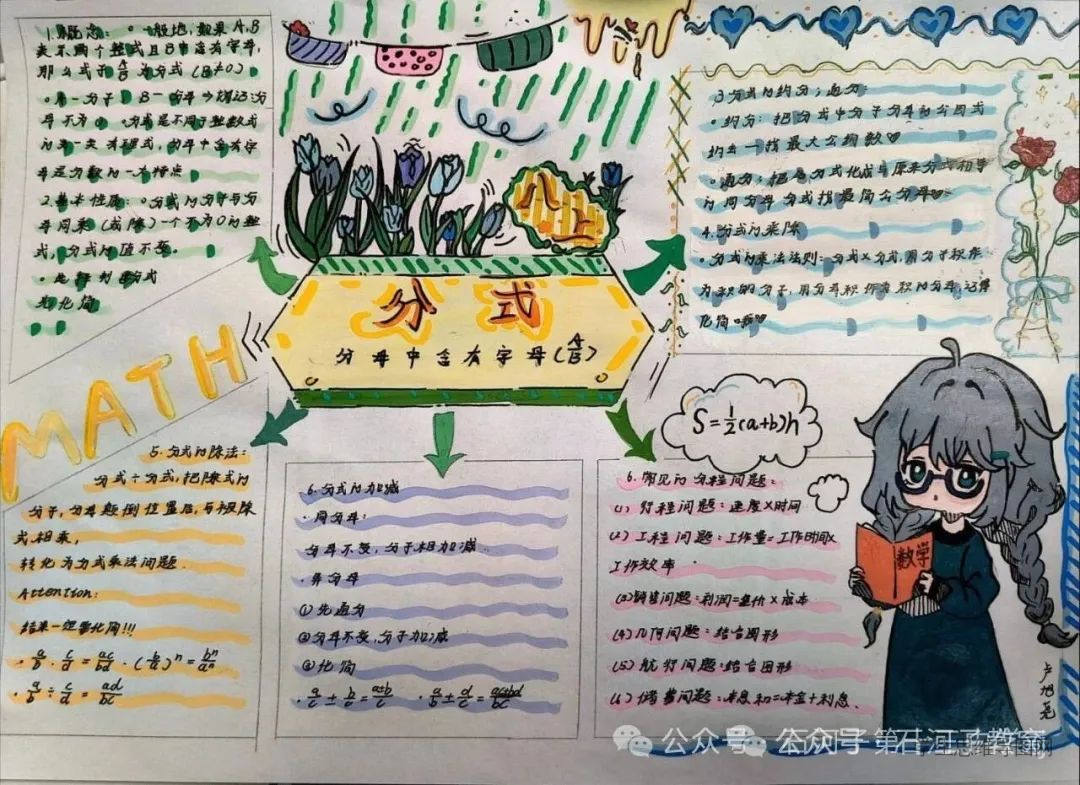 1.概念: 一般地,如果A,B
表示两个整式且B中含有字母,
那么式子A/B为分式(B≠0)
母不为0 分式是不同于整数式
的另一类有理式,分母中含有字
母是分数的一大特点
2.基本性质: 分式的分子与分
母同乘(或除)一个不为0的整
式,分式的值不变。
先化简
八上
分 式
分母中含有字母(A/B)
MATH
3分式的约分;通分:
·约分:把分式中分子分母的公因式
约去一找最大公约数
·通分:把异分式化成与原来分式相等
的同分母分式找最简公分母
4.分式的乘除
·分式的乘法法则:分式×分式,用分子积作
为积的分子,用分母积作为积的分母,记得
化简哦
5.分式的除法:
分式÷分式,把除式的
分子,分母颠倒位置后,与被除
式相乘,
转化为分式乘法问题.
Attention:
结果一定要化简!!!
·a/b·c/d=ac/bd ·(b/a)ⁿ=bⁿ/aⁿ
·a/b÷c/d=ad/bc
6.分式的加减
·同分母:
分母不变,分子相加减
·异分母
①先通分
②分母不变,分子加减
③化简
·a/c±b/c=a±b/c
S=½(a+b)h
6.常见的分程问题:
(1)行程问题:速度×时间
(2)工程问题:工作量=工作时间×
工作效率
(3)销售问题:利润=售价×成本
(4)几何问题:结合图形
(5)航行问题:结合图形
(6)储蓄问题:本息和=本金+利息.
数学
公众号
公众号